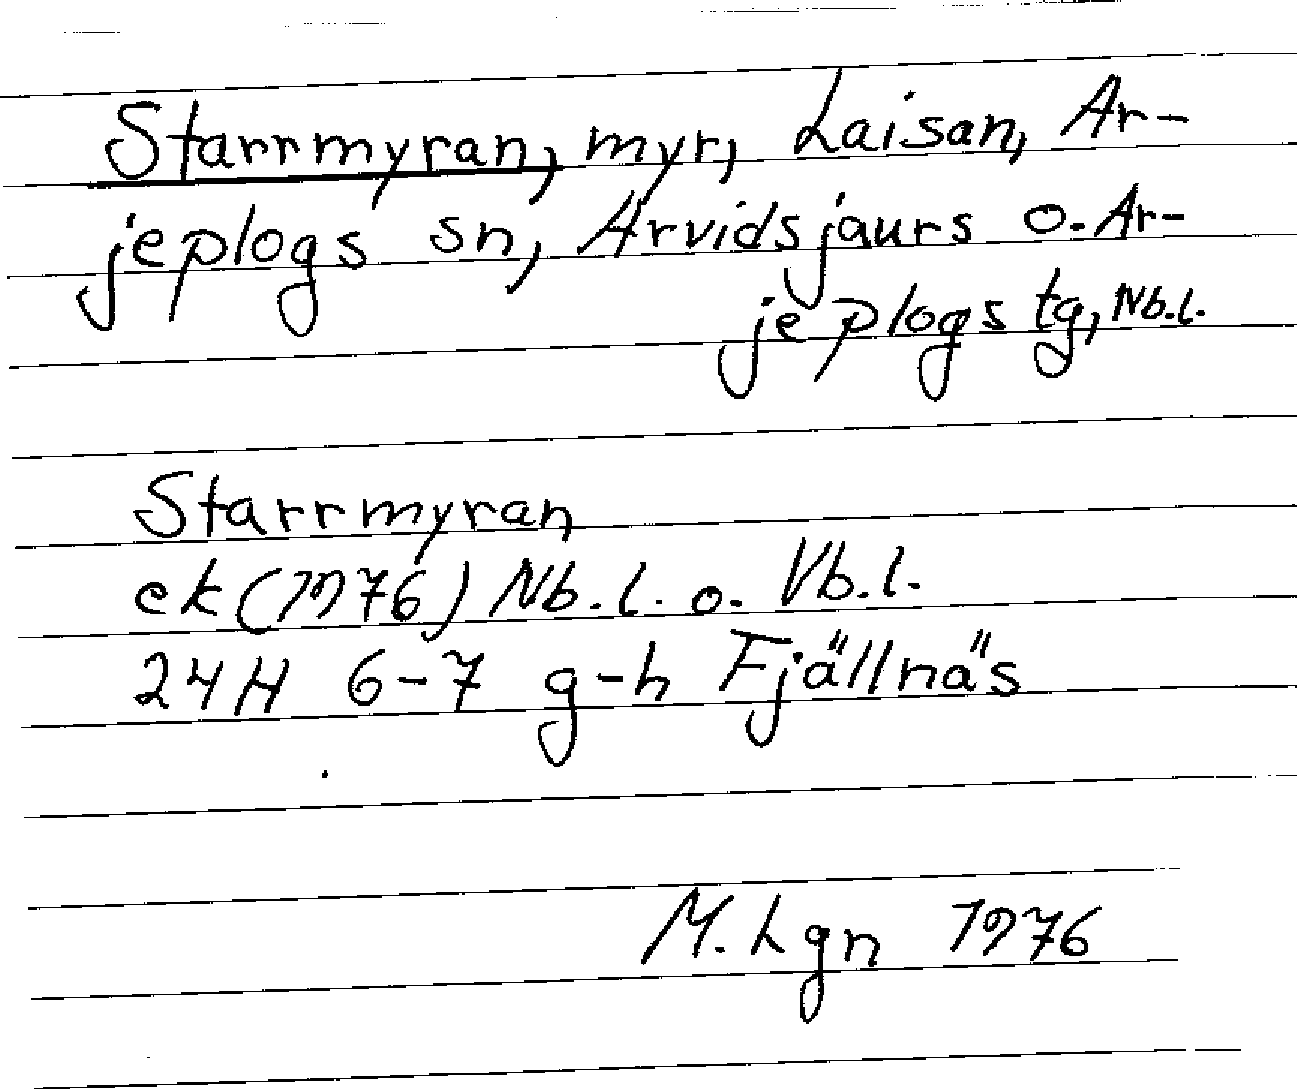 Starrmyran, myr, Laisan, Ar-
jeplogs sn, Arvidsjaurs o. Ar-
jeplogs tg, Nb.l.
Starrmyran
ek (1976) Nb.l. o. Vb.l.
24H 6-7 g-h Fjällnäs
M. Lgn 1976